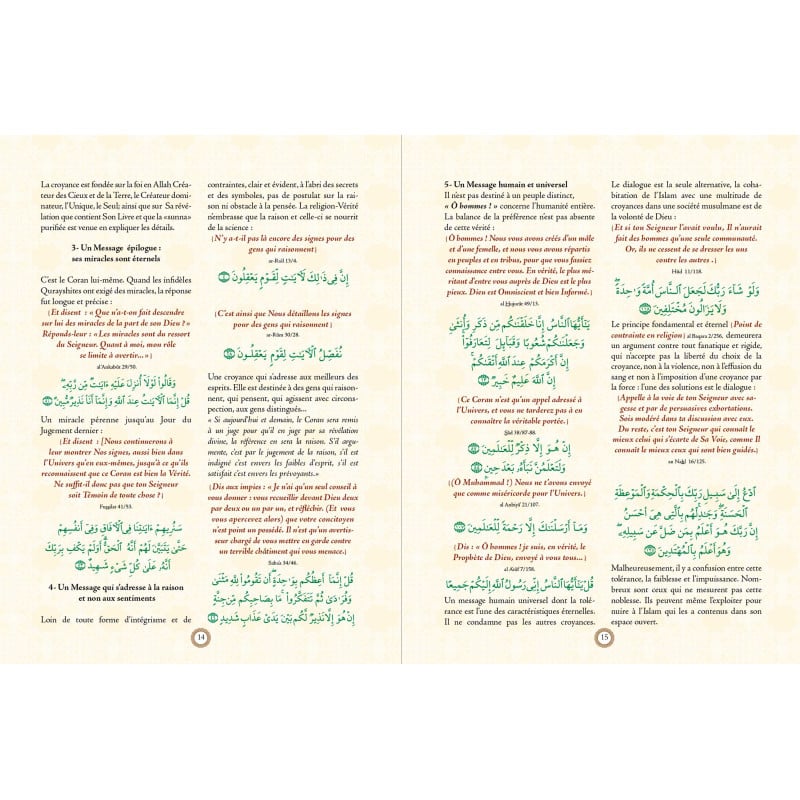 La croyance est fondée sur la foi en Allah Créa-
teur des Cieux et de la Terre, le Créateur domi-
nateur, l'Unique, le Seul; ainsi que Sa révé-
lation que contient Son Livre et que la «sunna»
purifiée est venue en expliquer les détails.
3- Un Message épilogue :
ses miracles sont éternels
C'est le Coran lui-même. Quand les infidèles
Qurayshites ont exigé des miracles, la réponse
fut longue et précise :
﴾Et disent : « Que n'a-t-on fait descendre
sur lui des miracles de la part de son Dieu ? »
Réponds-leur : « Les miracles sont du ressort
du Seigneur. Quant à moi, mon rôle
se limite à avertir... »﴿
al'Ankabūt 29/50.
وَقَالُوا۟ لَوْلَآ أُنزِلَ عَلَيْهِ ءَايَٰتٌ مِّن رَّبِّهِۦ
قُلْ إِنَّمَا ٱلْءَايَٰتُ عِندَ ٱللَّهِ وَإِنَّمَآ أَنَا۠ نَذِيرٌ مُّبِينٌ
Un miracle pérenne jusqu'au Jour du
Jugement dernier :
﴾Et disent : [Nous continuerons à
leur montrer Nos signes, aussi bien dans
l'Univers qu'en eux-mêmes, jusqu'à ce qu'ils
reconnaissent que ce Coran est bien la Vérité.
Ne suffit-il donc pas que ton Seigneur
soit Témoin de toute chose ?﴿
Fuṣṣilat 41/53.
سَنُرِيهِمْ ءَايَٰتِنَا فِى ٱلْءَافَاقِ وَفِىٓ أَنفُسِهِمْ
حَتَّىٰ يَتَبَيَّنَ لَهُمْ أَنَّهُ ٱلْحَقُّ أَوَلَمْ يَكْفِ بِرَبِّكَ
أَنَّهُۥ عَلَىٰ كُلِّ شَىْءٍ شَهِيدٌ
4- Un Message qui s'adresse à la raison
et non aux sentiments
Loin de toute forme d'intégrisme et de
contraintes, clair et évident, à l'abri des secrets
et des symboles, pas de postulat sur la rai-
son ni obstacle à la pensée. La religion-Vérité
n'embrasse que la raison et celle-ci se nourrit
de la science :
﴾N'y a-t-il pas là encore des signes pour des
gens qui raisonnent﴿
ar-Ra'd 13/4.
إِنَّ فِى ذَٰلِكَ لَءَايَٰتٍ لِّقَوْمٍ يَعْقِلُونَ
﴾C'est ainsi que Nous détaillons les signes
pour des gens qui raisonnent﴿
ar-Rūm 30/28.
نُفَصِّلُ ٱلْءَايَٰتِ لِقَوْمٍ يَعْقِلُونَ
Une croyance qui s'adresse aux meilleurs des
esprits. Elle est destinée à des gens qui raison-
nent, qui pensent, qui agissent avec circons-
pection, aux gens distingués...
« Si aujourd'hui et demain, le Coran sera remis
à un juge pour qu'il en juge par sa révélation
divine, la référence en sera la raison. S'il argu-
mente, c'est par le jugement de la raison, s'il est
indigné c'est envers les faibles d'esprit, s'il est
satisfait c'est envers les prévoyants.»
﴾Dis aux impies : « Je n'ai qu'un seul conseil à
vous donner : vous recueillir devant Dieu deux
par deux ou un par un, et réfléchir. (Et vous
vous apercevrez alors) que votre concitoyen
n'est point un possédé. Il n'est qu'un avertis-
seur chargé de vous mettre en garde contre
un terrible châtiment qui vous menace.﴿
Sabaʾ 34/46.
قُلْ إِنَّمَآ أَعِظُكُم بِوَٰحِدَةٍ أَن تَقُومُوا۟ لِلَّهِ مَثْنَىٰ
وَفُرَٰدَىٰ ثُمَّ تَتَفَكَّرُوا۟ مَا بِصَاحِبِكُم مِّن جِنَّةٍ
إِنْ هُوَ إِلَّا نَذِيرٌ لَّكُم بَيْنَ يَدَىْ عَذَابٍ شَدِيدٍ
14
5- Un Message humain et universel
Il n'est pas destiné à un peuple distinct,
« Ô hommes ! » concerne l'humanité entière.
La balance de la préférence n'est pas absente
de cette vérité :
﴾Ô hommes ! Nous vous avons créés d'un mâle
et d'une femelle, et nous vous avons répartis
en peuples et en tribus, pour que vous fassiez
connaissance entre vous. En vérité, le plus mé-
ritant d'entre vous auprès de Dieu est le plus
pieux. Dieu est Omniscient et bien Informé.﴿
al Ḥujurāt 49/13.
يَٰٓأَيُّهَا ٱلنَّاسُ إِنَّا خَلَقْنَٰكُم مِّن ذَكَرٍ وَأُنثَىٰ
وَجَعَلْنَٰكُمْ شُعُوبًا وَقَبَآئِلَ لِتَعَارَفُوٓا۟
إِنَّ أَكْرَمَكُمْ عِندَ ٱللَّهِ أَتْقَىٰكُمْ
إِنَّ ٱللَّهَ عَلِيمٌ خَبِيرٌ
﴾Ce Coran n'est qu'un appel adressé à
l'Univers, et vous ne tarderez pas à en
connaître la véritable portée.﴿
Ṣād 38/87-88.
إِنْ هُوَ إِلَّا ذِكْرٌ لِّلْعَٰلَمِينَ
وَلَتَعْلَمُنَّ نَبَأَهُۥ بَعْدَ حِينٍۭ
﴾(Ô Muhammad !) Nous ne t'avons envoyé
que comme miséricorde pour l'Univers.﴿
al Anbiyāʾ 21/107.
وَمَآ أَرْسَلْنَٰكَ إِلَّا رَحْمَةً لِّلْعَٰلَمِينَ
﴾Dis : « Ô hommes ! je suis, en vérité, le
Prophète de Dieu, envoyé à vous tous...﴿
al A'rāf 7/158.
قُلْ يَٰٓأَيُّهَا ٱلنَّاسُ إِنِّى رَسُولُ ٱللَّهِ إِلَيْكُمْ جَمِيعًا
Un message humain universel dont la tolé-
rance est l'une des caractéristiques éternelles.
Il ne condamne pas les autres croyances.
Le dialogue est la seule alternative, la coha-
bitation de l'Islam avec une multitude de
croyances dans une société musulmane est de
la volonté de Dieu :
﴾Et si ton Seigneur l'avait voulu, Il n'aurait
fait des hommes qu'une seule communauté.
Or, ils ne cessent de se dresser les uns
contre les autres .﴿
Hūd 11/118.
وَلَوْ شَآءَ رَبُّكَ لَجَعَلَ ٱلنَّاسَ أُمَّةً وَٰحِدَةً
وَلَا يَزَالُونَ مُخْتَلِفِينَ
Le principe fondamental et éternel ﴾Point de
contrainte en religion﴿ al Baqara 2/256, demeurera
un argument contre tout fanatique et rigide,
qui n'accepte pas la liberté du choix de la
croyance, non à la violence, non à l'effusion du
sang et non à l'imposition d'une croyance par
la force : l'une des solutions est le dialogue :
﴾Appelle à la voie de ton Seigneur avec sa-
gesse et par de persuasives exhortations.
Sois modéré dans ta discussion avec eux.
Du reste, c'est ton Seigneur qui connaît le
mieux celui qui s'écarte de Sa Voie, comme Il
connaît le mieux ceux qui sont bien guidés.﴿
an Naḥl 16/125.
ٱدْعُ إِلَىٰ سَبِيلِ رَبِّكَ بِٱلْحِكْمَةِ وَٱلْمَوْعِظَةِ
ٱلْحَسَنَةِ وَجَٰدِلْهُم بِٱلَّتِى هِىَ أَحْسَنُ
إِنَّ رَبَّكَ هُوَ أَعْلَمُ بِمَن ضَلَّ عَن سَبِيلِهِۦ
وَهُوَ أَعْلَمُ بِٱلْمُهْتَدِينَ
Malheureusement, il y a confusion entre cette
tolérance, la faiblesse et l'impuissance. Nom-
breux sont ceux qui ne mesurent pas cette
noblesse. Ils peuvent même l'exploiter pour
nuire à l'Islam qui les a contenus dans son
espace ouvert.
15